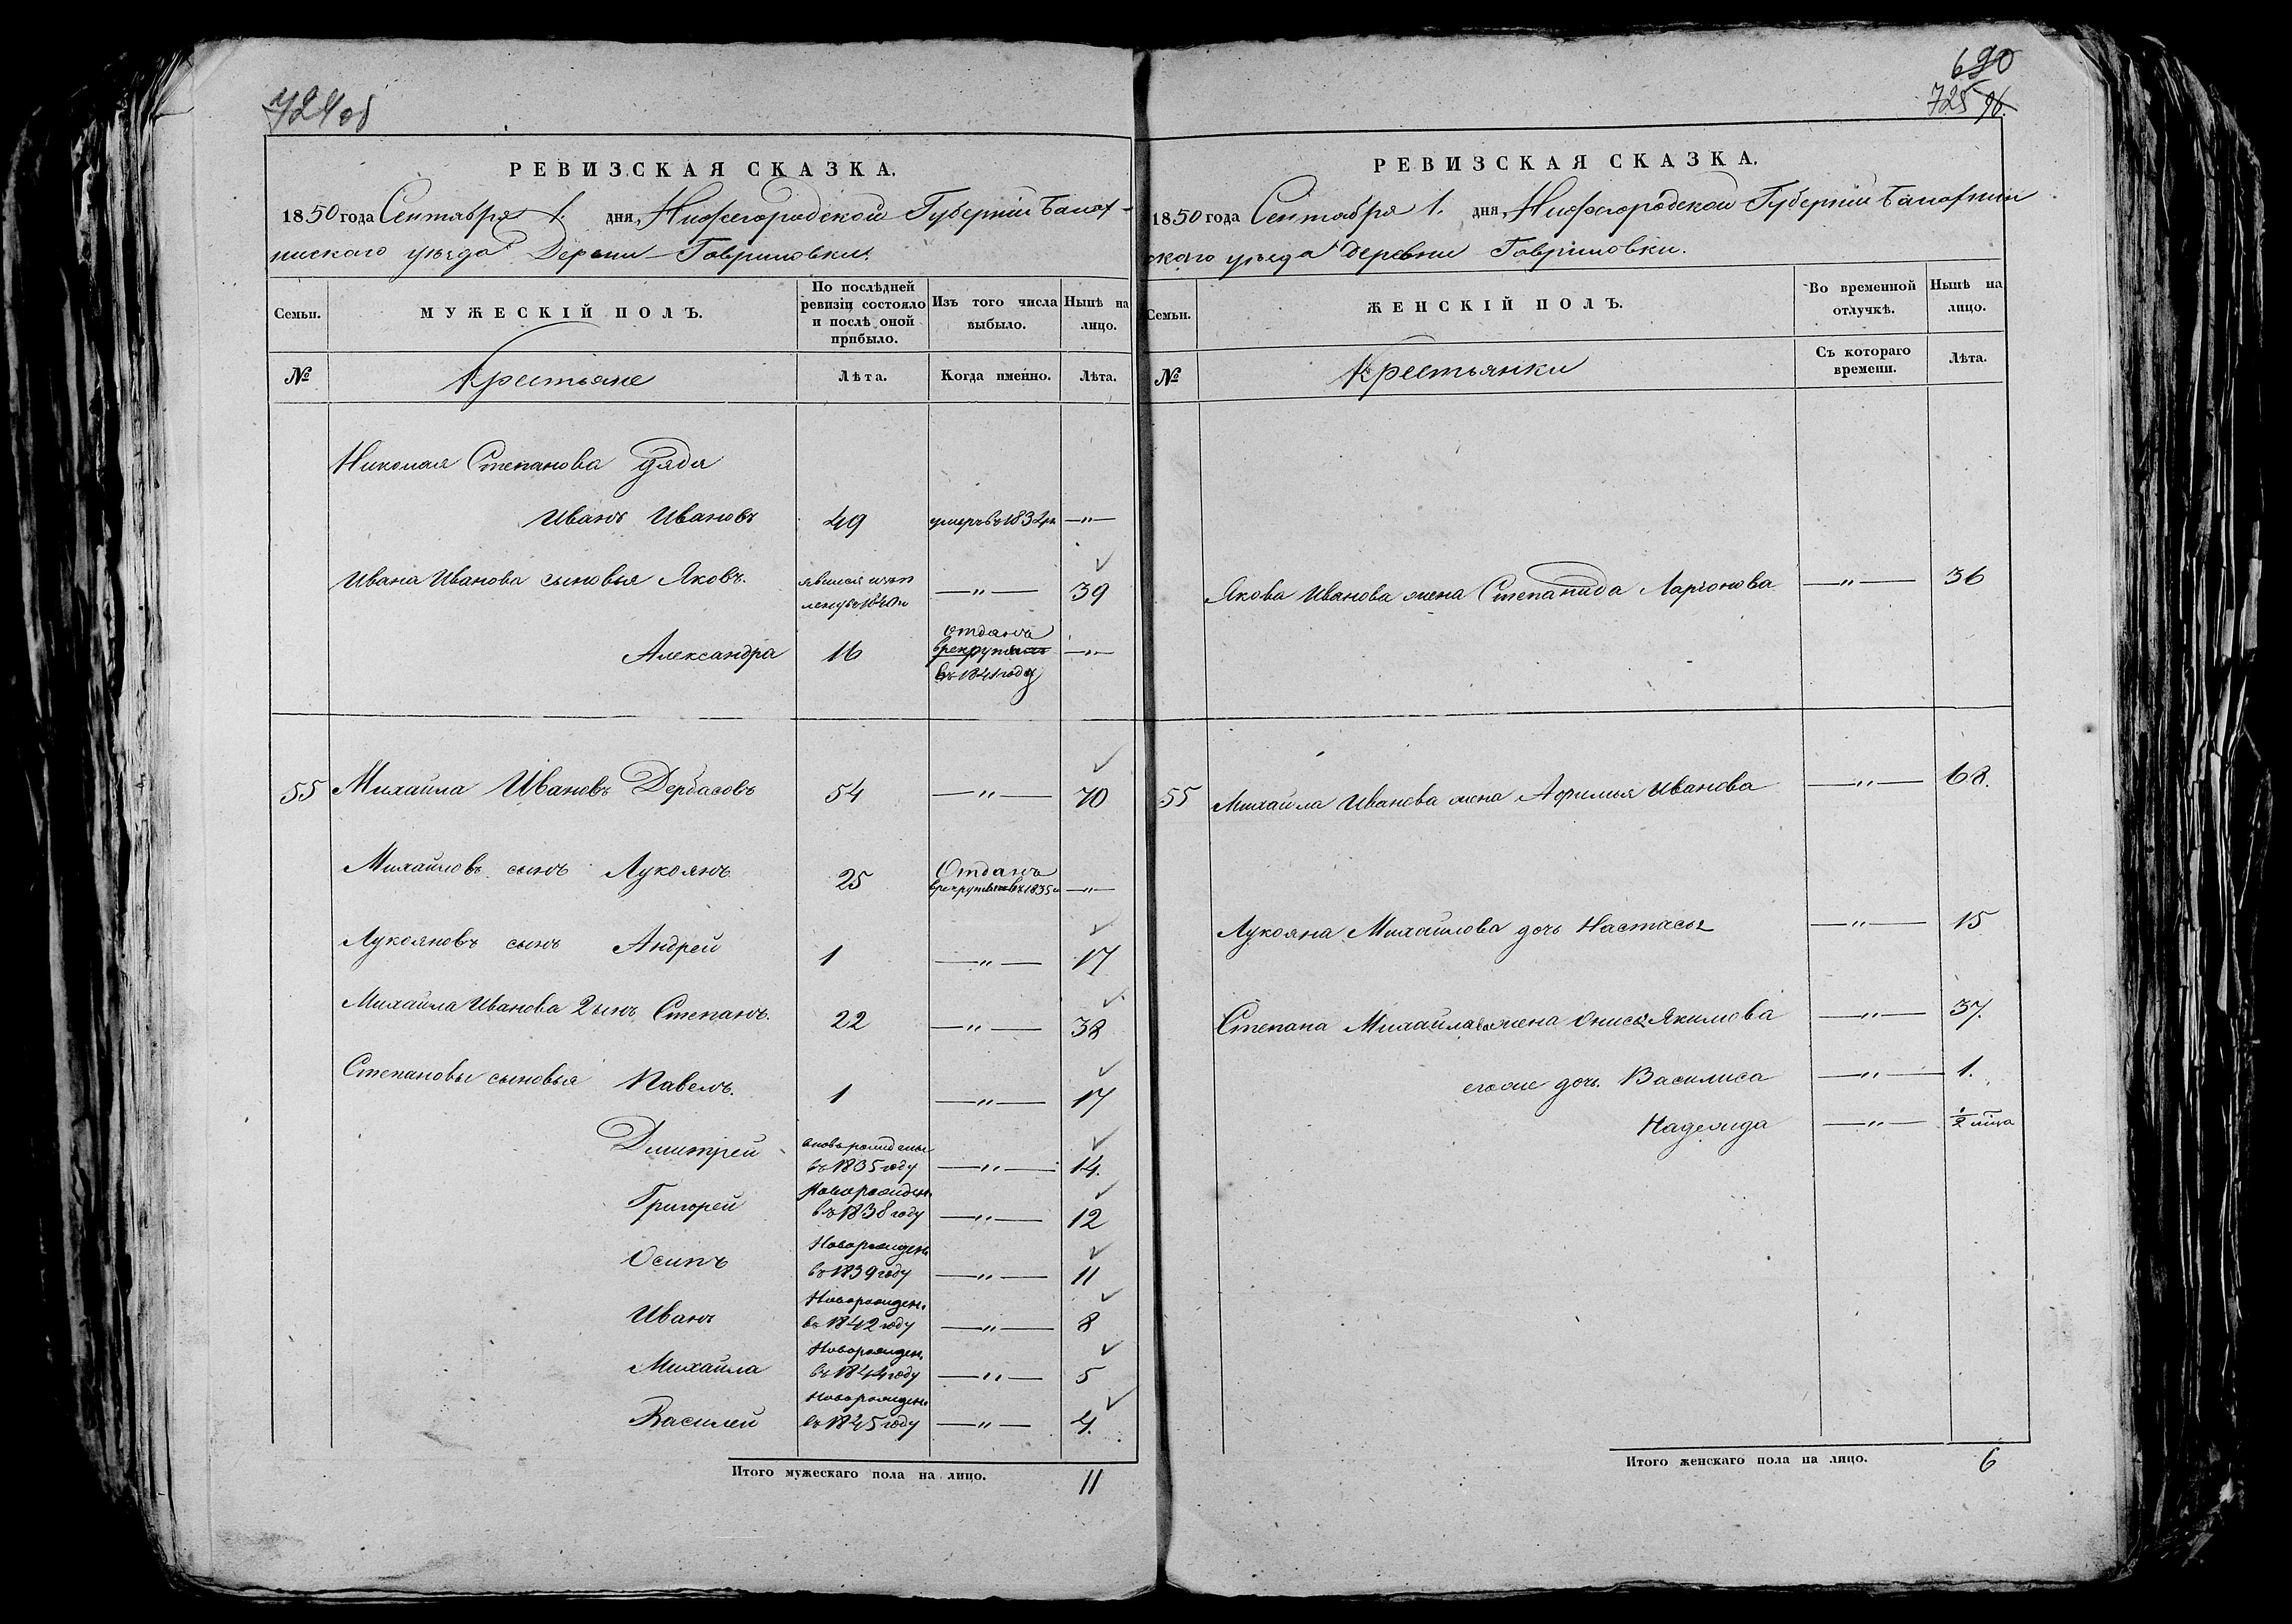 724 об
РЕВИЗСКАЯ СКАЗКА.
1850 года Сентября 1. дня, Нижегородской Губернiи Балах-
нинскаго уѣзда Деревни Гавриловки.
Семьи.
МУЖЕСКІЙ ПОЛЪ.
По послѣдней ревизіи состояло и послѣ оной прибыло.
Изъ того числа выбыло.
Нынѣ на лицо.
№
Крестьяне
Лѣта.
Когда именно.
Лѣта.
Николая Степанова дядя
Иванъ Ивановъ 49 умеръ въ 1832 —"—
Ивана Иванова сыновья Яковъ. явился 1840 —"— 39
Александра 16 отданъ в рекруты въ 1841 году —"—
55 Михайла Ивановъ Дербасовъ 54 —"— 70
Михайловъ сынъ Лукоянъ 25 Отданъ в рекруты въ 1835 —"—
Лукояновъ сынъ Андрей 1 —"— 17
Михайла Иванова 2 сынъ Степанъ. 22 —"— 38
Степановы сыновья Павелъ. 1 —"— 17
Дмитрей вновь рожденъ въ 1835 году —"— 14.
Григорей Новорожден. въ 1838 году —"— 12
Осипъ Новорожден. въ 1839 году —"— 11
Иванъ Новорожден. въ 1842 году —"— 8
Михайла Новорожден. въ 1844 году —"— 5
Василей Новорожден. въ 1845 году —"— 4.
Итого мужескаго пола на лицо. 11
690
725
РЕВИЗСКАЯ СКАЗКА.
1850 года Сентября 1. дня, Нижегородской Губернiи Балахнин
скаго уѣзда деревни Гавриловки.
Семьи.
ЖЕНСКІЙ ПОЛЪ.
Во временной отлучкѣ.
Нынѣ на лицо.
№
Крестьянки
Съ котораго времени.
Лѣта.
Якова Иванова жена Степанида Ларіонова —"— 36
55 Михайла Иванова жена Афимья Иванова —"— 68.
Лукояна Михайлова дочь Настасья —"— 15
Степана Михайлова жена Онисья Якимова —"— 37.
его же дочь. Василиса —"— 1.
Надежда —"— ½
Итого женскаго пола на лицо. 6